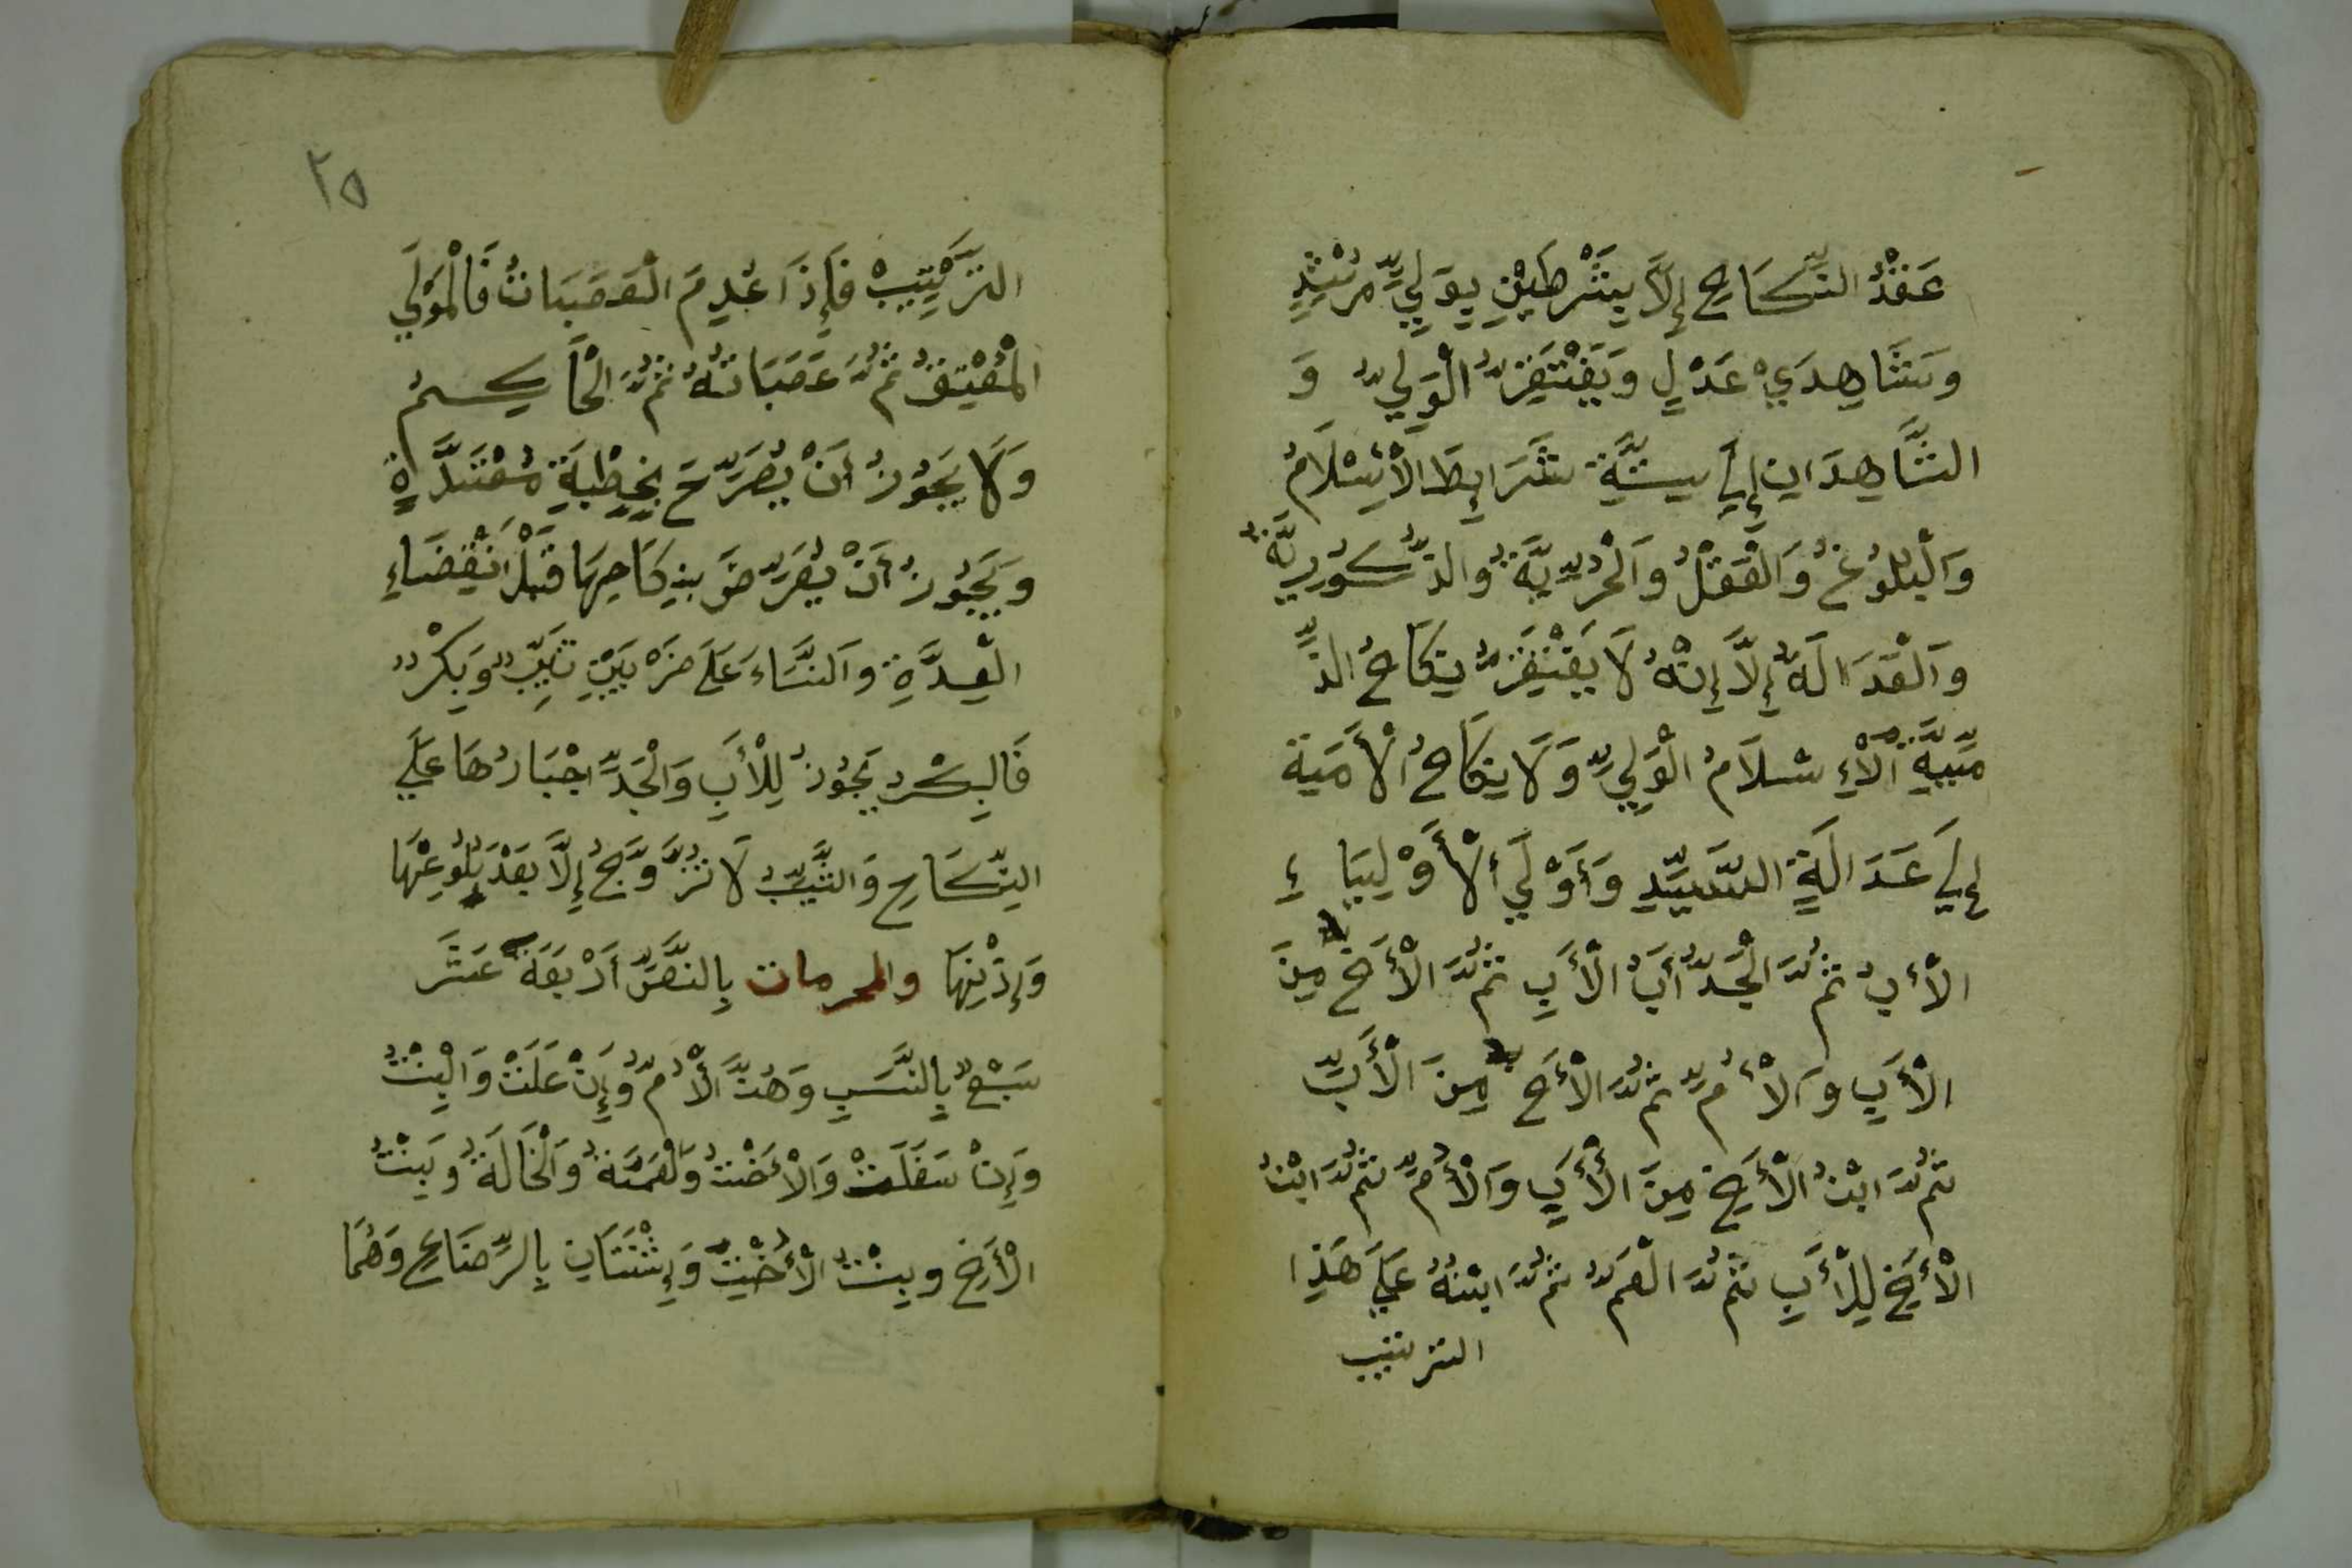 عَقْدُ النِّكَاحِ إِلَّا بِشَرْطَيْنِ بِوَلِيٍّ مُرْشِدٍ
وَشَاهِدَيْ عَدْلٍ وَيَفْتَقِرُ الْوَلِيُّ وَ
الشَّاهِدَانِ إِلَى سِتَّةِ شَرَايِطَ الْأِسْلَامُ
وَالْبُلُوغُ وَالْعَقْلُ وَالْحُرِّيَّةُ وَالذُّكُورِيَّةُ
وَالْعَدَالَةُ إِلَّا إِنَّهُ لَا يَفْتَقِرُ نِكَاحُ الذِّ
مِّيَّةِ الْإِسْلَامُ الْوَلِيِّ وَلَا نِكَاحُ الْأَمَةِ
إِلَى عَدَالَةِ السَّيِّدِ وَأَوْلَى الْأَوْلِيَاءِ
الْأَبُ ثُمَّ الْجَدُّ أَبُ الْأَبِ ثُمَّ الْأَخُ مِنَ
الْأَبِ وَالْأُمِّ ثُمَّ الْأَخُ مِنَ الْأَبِّ
ثُمَّ ابْنُ الْأَخِ مِنَ الْأَبِ وَالْأُمِّ ثُمَّ ابْنُ
الْأَخِ لِلْأَبِ ثُمَّ الْعَمُّ ثُمَّ ابْنُهُ عَلَى هَذَا
الترتيب
٢٥
التَّرْتِيبْ فَإِذَا عُدِمَ الْعَصَبَاتُ فَالْمَوْلَى
الْمُعْتِقُ ثُمَّ عَصَبَاتُهُ ثُمَّ الْحَاكِمُ
وَلَا يَجُوزُ أَنْ يُصَرِّحَ بِخِطْبَةِ مُعْتَدَّةٍ
وَيَجُوزُ أَنْ يُعَرِّضَ بِنِكَاحِهَا قَبْلَ انْقِضَاءِ
الْعِدَّةِ وَالنِّسَاءَ عَلَى ضَرْبَيْنِ ثَيِّبٌ وَبِكْرٌ
فَالبِكْرُ يَجُوزُ لِلْأَبِ وَالْجَدِّ اجْبَارُهَا عَلَى
النِّكَاحِ وَالثَّيِّبُ لَا تُزَوَّجُ إِلَّا بَعْدَ بُلُوغِهَا
وَإِذْنِهَا والمحرمات بِالنَّصِّ أَرْبَعَةَ عَشَرَ
سَبْعٌ بِالنَّسَبِ وَهُنَّ الْأُمُّ وَإِنْ عَلَتْ وَالْبِنْتُ
وَإِنْ سَفَلَتْ وَالْأُخْتُ وَالْعَمَّةُ وَالْخَالَةُ وَبِنْتُ
الْأَخِ وَبِنْتُ الْأُخْتِ وَإِثْنَتَانِ بِالرِّضَاعِ وَهُمَا